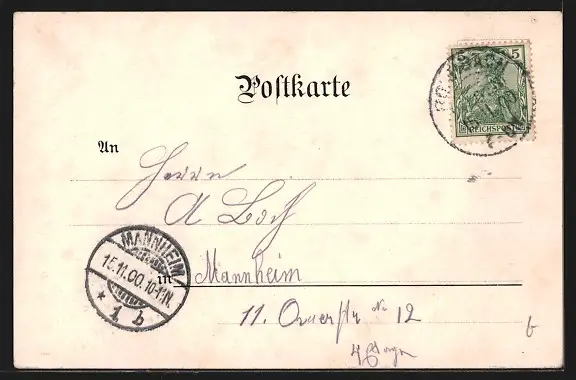 Postkarte
5
REICHSPOST
An
Herrn
A
MANNHEIM
15.11.00.10-11N.
* 1 b
in Mannheim
11. Querstr No 12
b